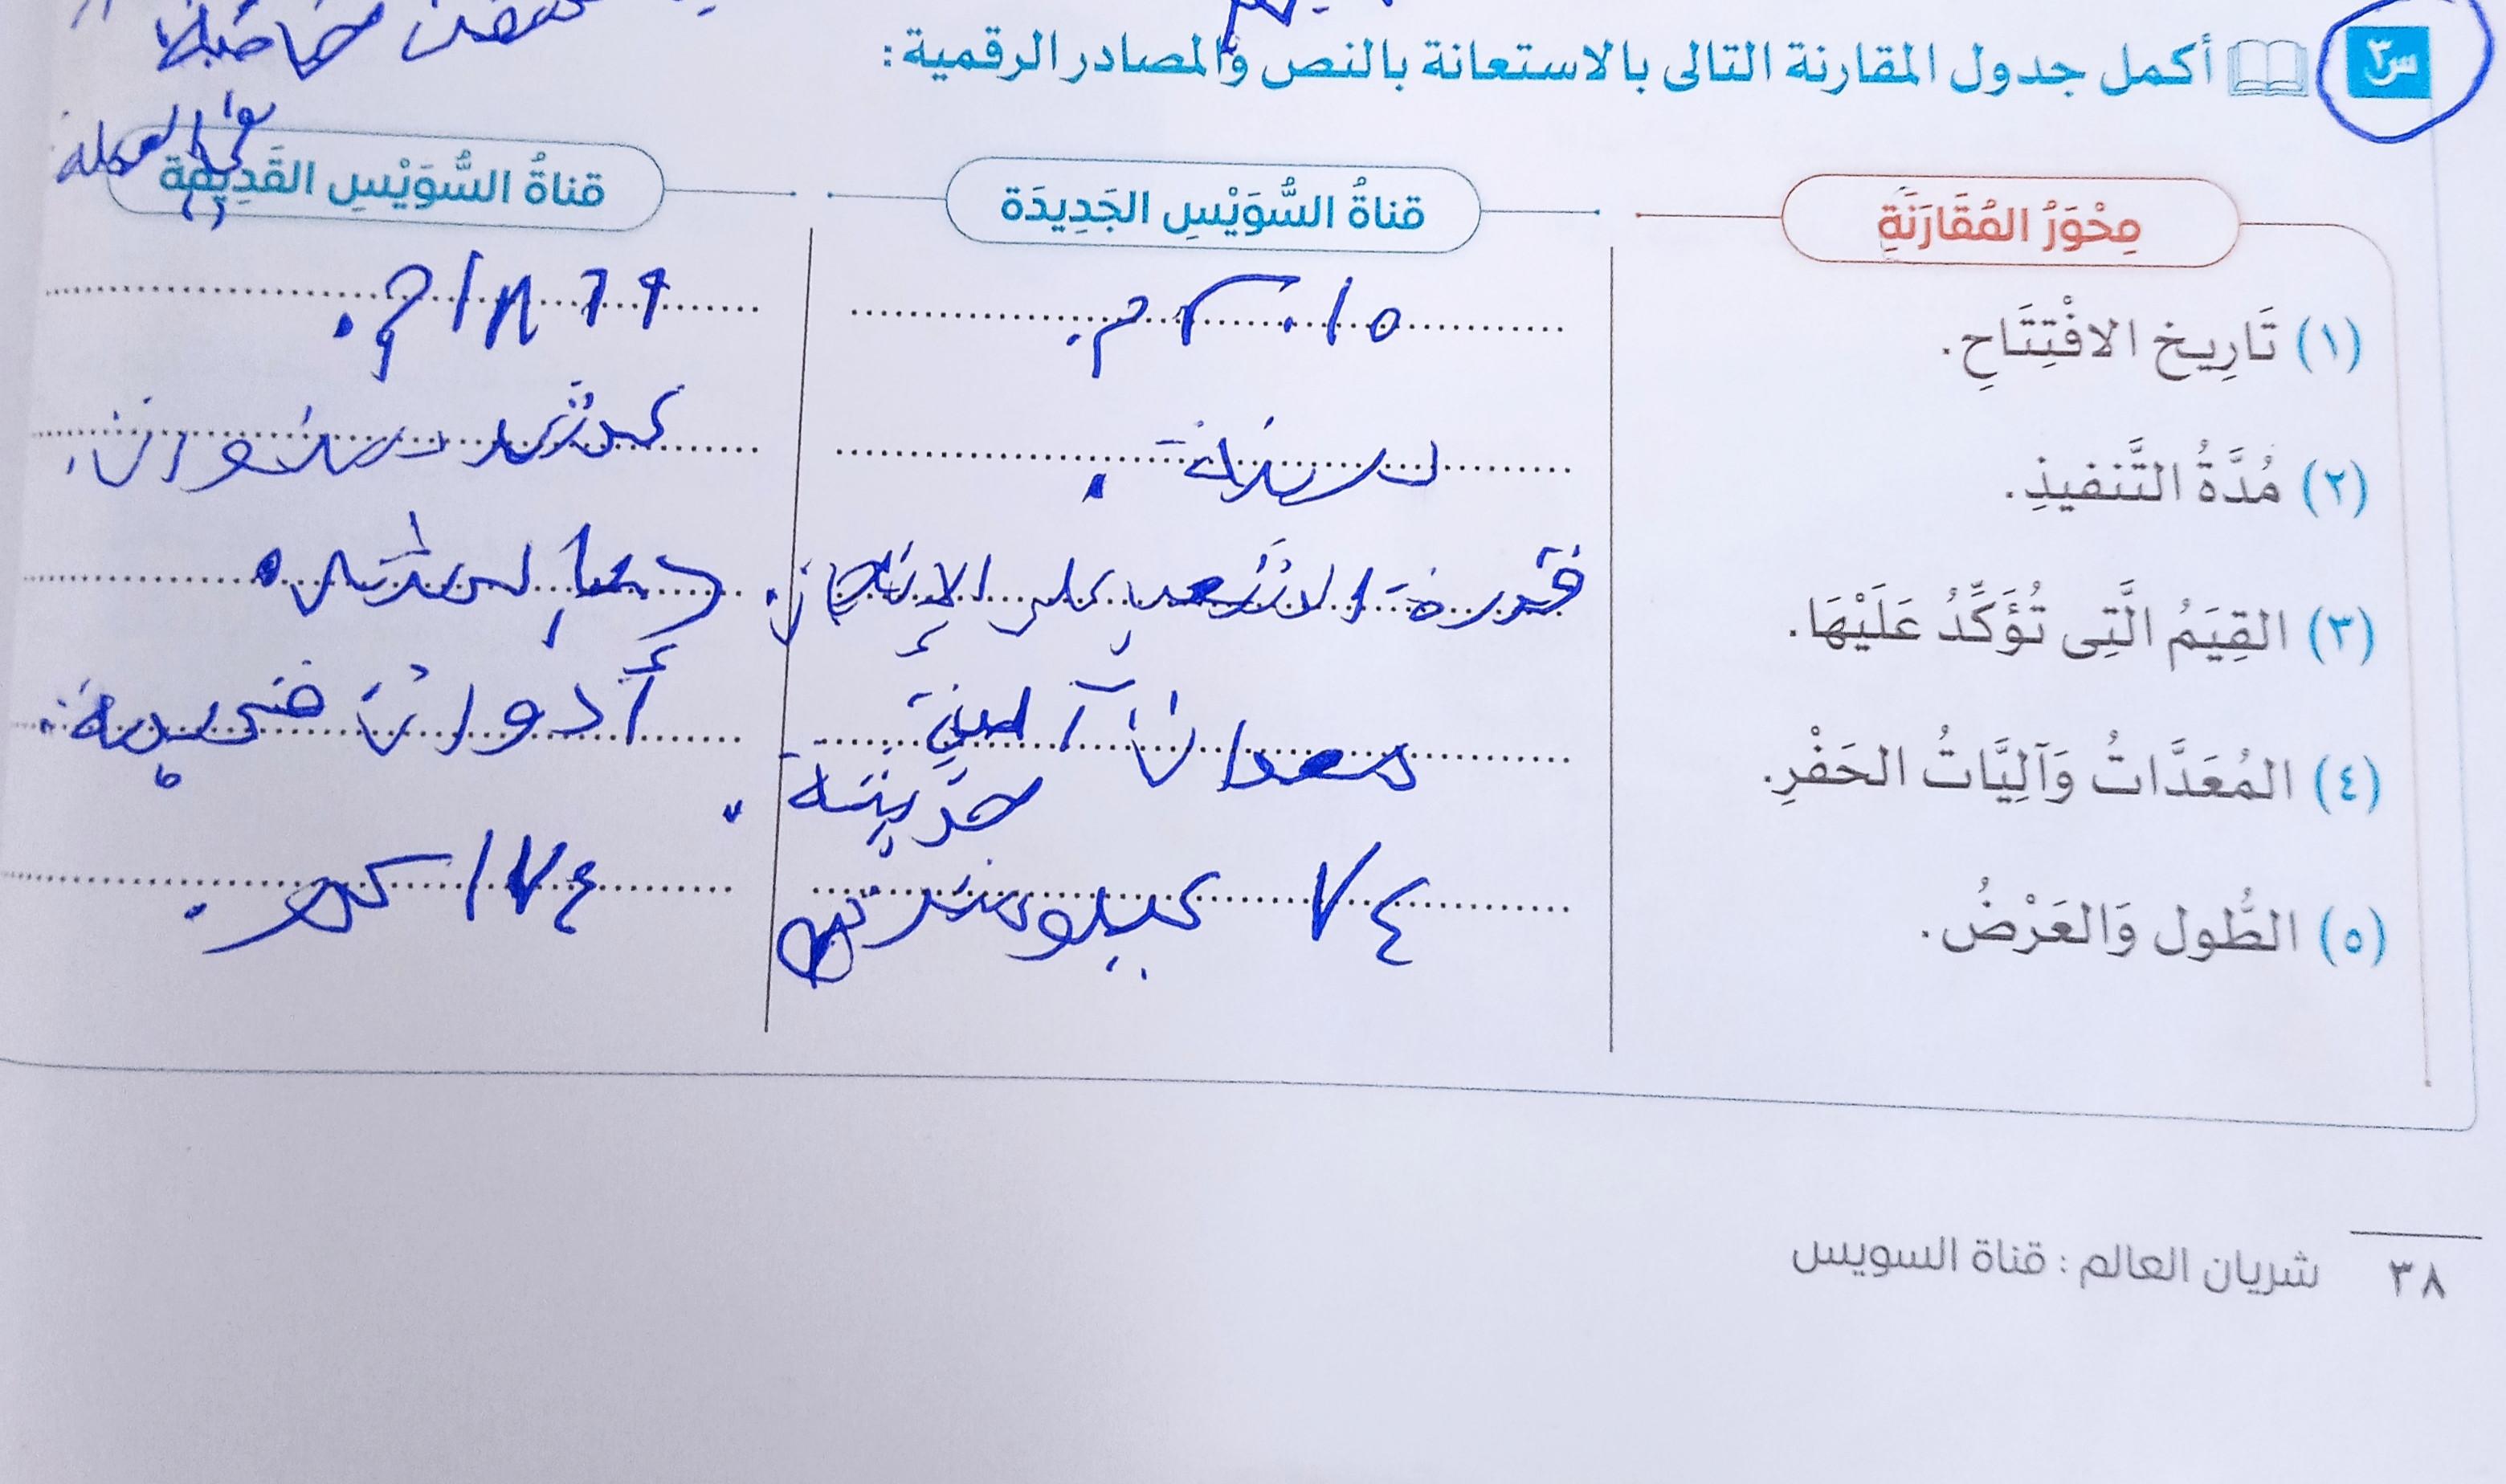 س٣ أكمل جدول المقارنة التالى بالاستعانة بالنص والمصادر الرقمية:
فى العمله
مِحْوَرُ المُقَارَنَةِ قناةُ السُّوَيْسِ الجَدِيدَة قناةُ السُّوَيْسِ القَدِيمَة
(١) تَارِيخ الافْتِتَاحِ. ٢٠١٥م. ١٨٦٩م.
(٢) مُدَّةُ التَّنفيذِ. سنة. عشر سنوات.
(٣) القِيَمُ الَّتِى تُؤَكِّدُ عَلَيْهَا. قدرة الشعب على الإنجاز.
(٤) المُعَدَّاتُ وَآلِيَّاتُ الحَفْرِ. معدات آلية أدوات
حديثة.
(٥) الطُّول وَالعَرْضُ. ٧٤ كيلومتر ١٧٤ كم.
٣٨ شريان العالم : قناة السويس